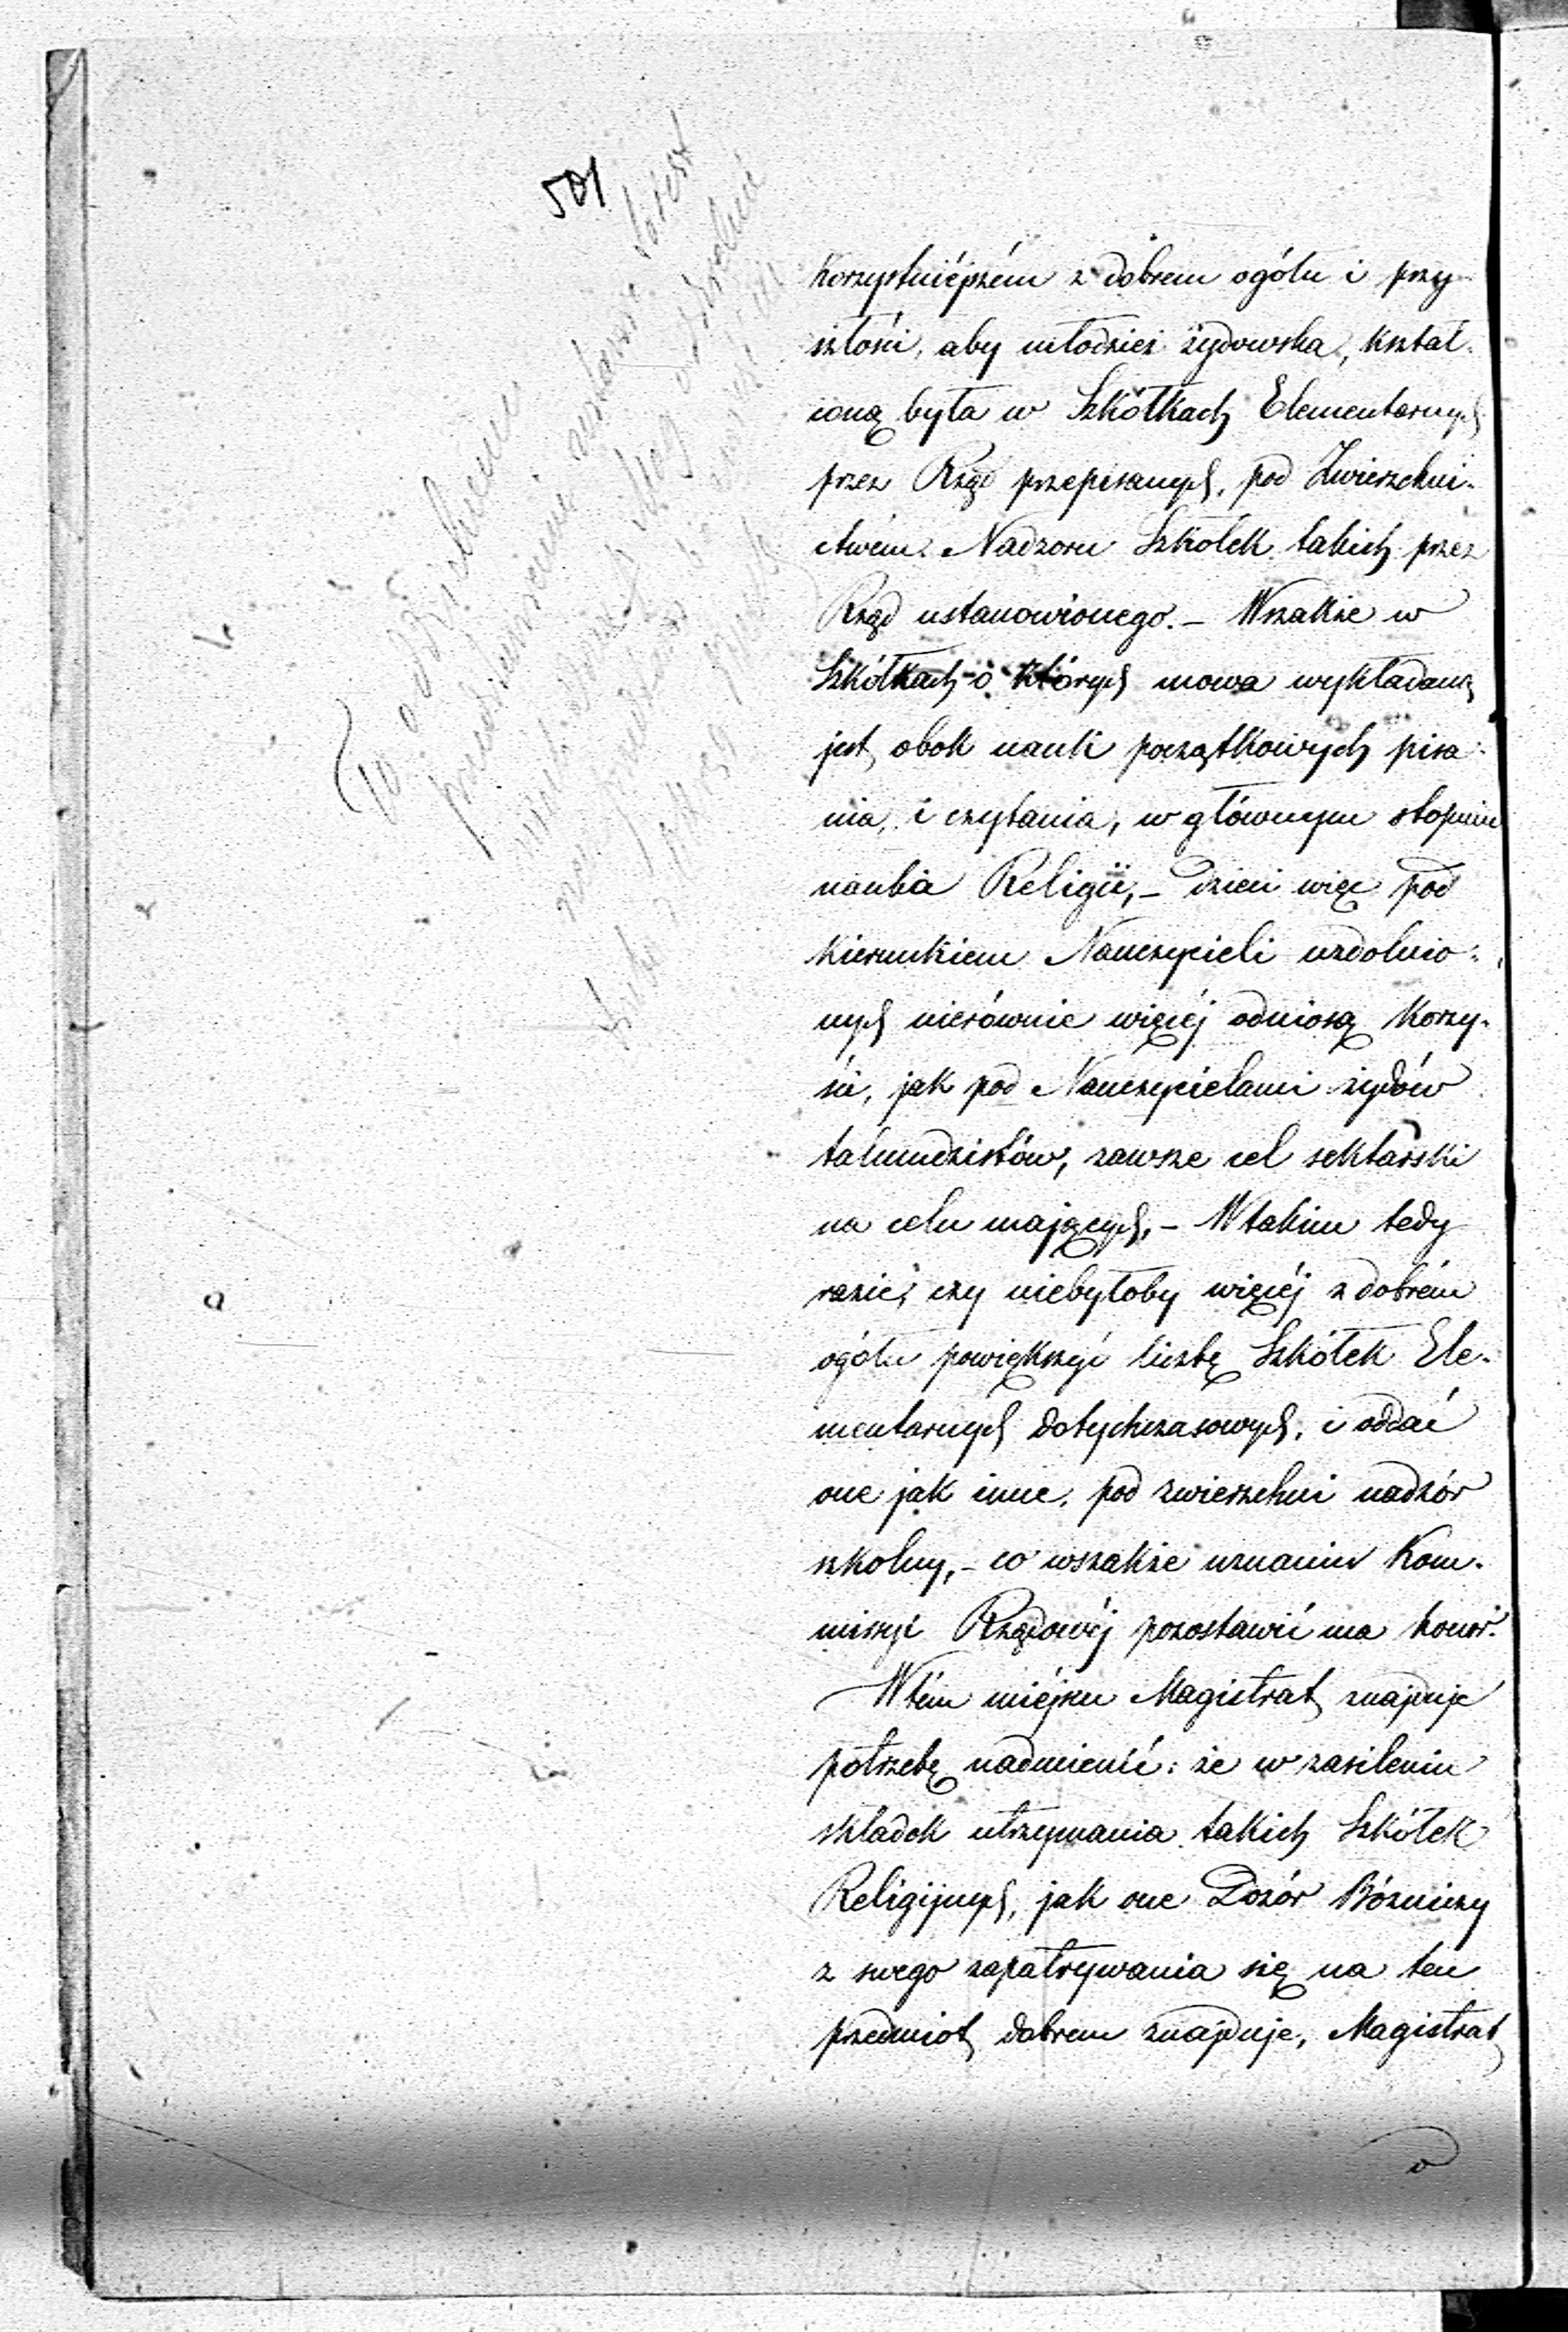 501
korzystniéjszém z dobrem ogółu i przy-
szłości, aby młodzież żydowska, kształ-
coną była w Szkółkach Elementarnych
przez Rząd przepisanych, pod Zwierzchni-
ctwém Nadzoru Szkółek takich przez
Rząd ustanowionego. – Wszakże w
Szkółkach o których mowa wykładaną
jest, obok nauk początkowych pisa-
nia, i czytania, w głównym stopniu
nauka Religii, – dzieci więc pod
kierunkiem Nauczycieli uzdolnio-
nych nierównie więcéj odniosą korzy-
ści, jak pod Nauczycielami żydów
talmudzistów, zawsze cel sektarski
na celu mających, – W takim tedy
razie, czy niebyłoby więcéj z dobrém
ogółu powiększyć liczbę Szkółek Ele-
mentarnych dotychczasowych, i oddać
one jak inne, pod zwierzchni nadzór
szkolny, – co wszakże uznaniu Kom-
missyi Rządowéj pozostawić ma honor.
W tém miéjscu Magistrat znajduje
potrzebę nadmienić: że w zasileniu
składek utrzymania takich Szkółek
Religijnych, jak one Dozór Bóżniczy
z swego zapatrywania się na ten
przedmiot dobrem znajduje, Magistrat